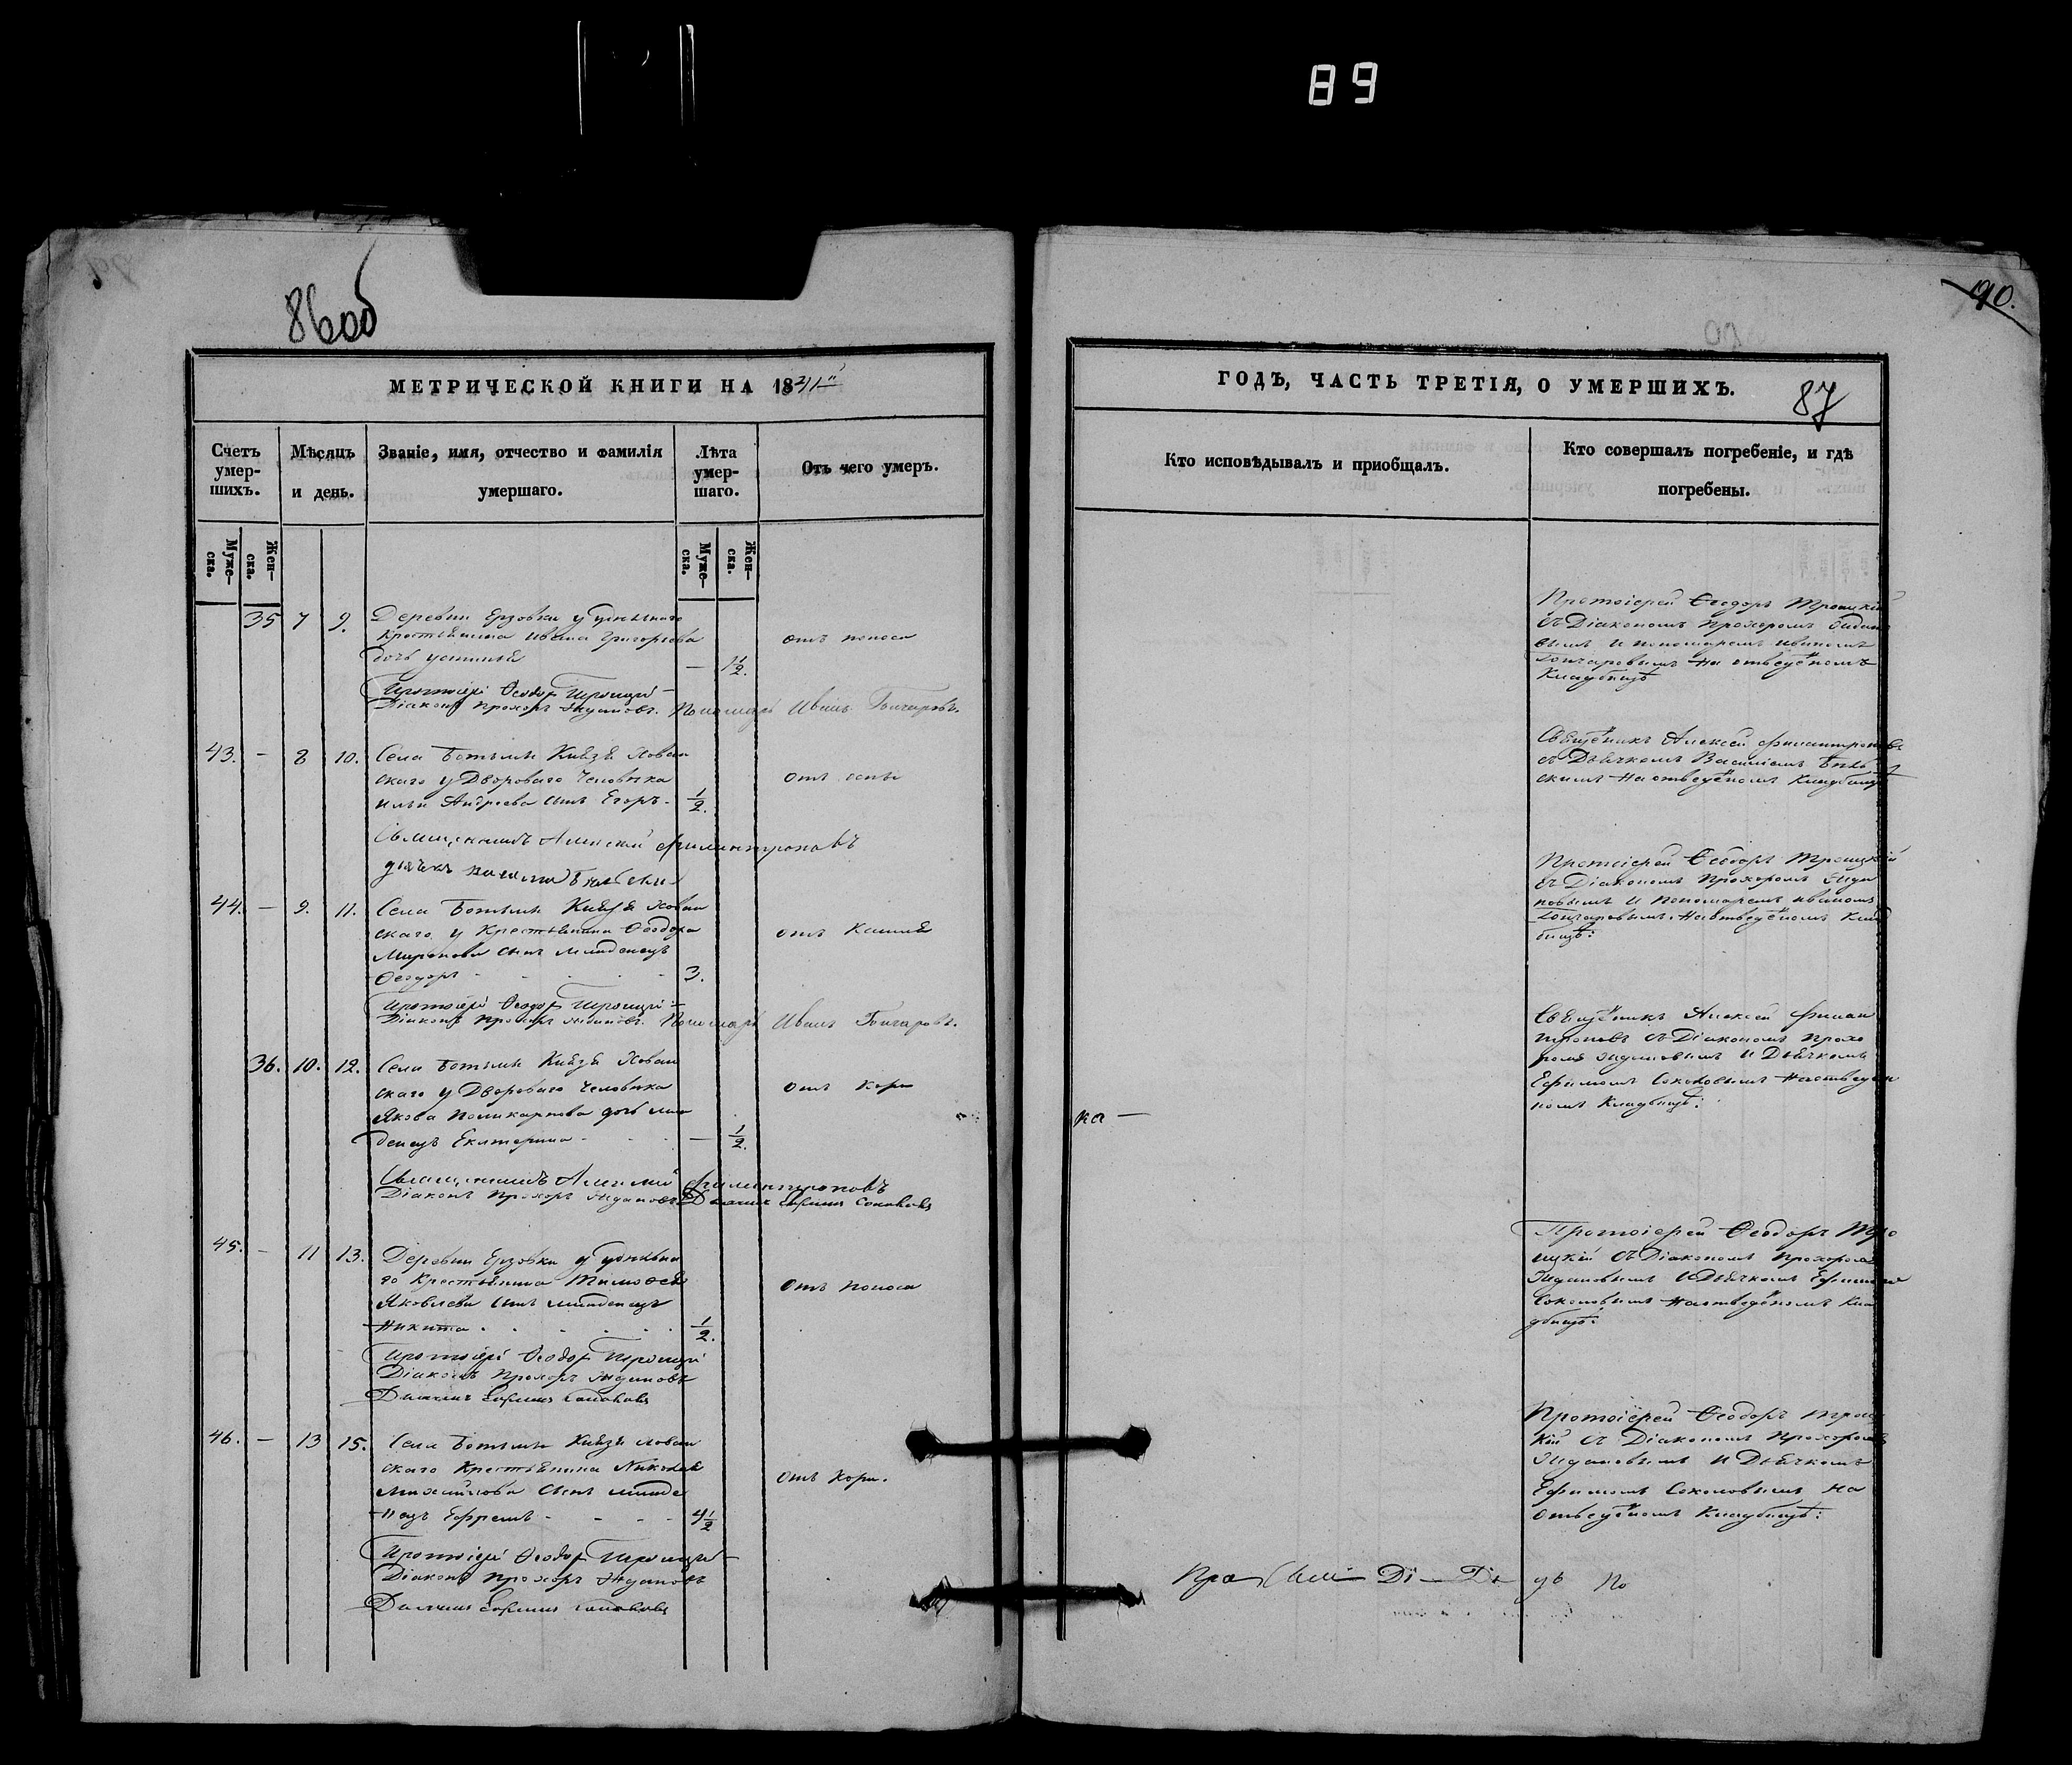 89
86об
90.
МЕТРИЧЕСКОЙ КНИГИ НА 1841й
Счетъ умер-шихъ.
Мѣсяцъ и день.
Званіе, имя, отчество и фамилія умершаго.
Лѣта умер-шаго.
Отъ чего умеръ.
Муже-ска.
Жен-ска.
Муже-ска.
Жен-ска.
35 7 9. Деревни Ерзовки у удѣльнаго
крестьянина Ивана Григорьева
дочь Устинья — 1½.
отъ поноса
Протоіерей Ѳеодоръ Троицкій
Діаконъ Прохоръ Ждановъ. Пономарь Иванъ Гончаровъ.
43. — 8 10. Села Ботьмы Князя Хован
скаго у Дворового Человѣка
Ильи Андреева сынъ Егоръ. ½.
отъ оспы
Священникъ Алексей Филантроповъ
43
44. — 9. 11. Села Ботьмы Князя Хован
скаго у Крестьянина Ѳеодора
Миронова сынъ младенецъ
Ѳеодоръ 3.
отъ Кашля
Протоіерей Ѳеодоръ Троицкій
Діаконъ Прохоръ Ждановъ. Пономарь Иванъ Гончаровъ.
36. 10. 12. Села Ботьмы Князя Хован
скаго у Дворового Человѣка
Якова Поликарпова дочь мла
денецъ Екатерина — ½.
отъ Кори
Священникъ Алексей Филантроповъ
Діаконъ Прохоръ Ждановъ Дьячекъ Ефимъ Соколовъ
45. — 11 13. Деревни Ерзовки у удѣльна
го Крестьянина Тимоѳея
Яковлева сынъ младенецъ
Никита ½.
отъ поноса
Протоіерей Ѳеодоръ Троицкій
Діаконъ Прохоръ Ждановъ
Дьячекъ Ефимъ Соколовъ
46. — 13 15. Села Ботьмы Князя Хован
скаго Крестьянина Николая
Михайлова сынъ младе
нецъ Ефремъ 4½
отъ Кори.
Протоіерей Ѳеодоръ Троицкій
Діаконъ Прохоръ Ждановъ
Дьячекъ Ефимъ Соколовъ
ГОДЪ, ЧАСТЬ ТРЕТІЯ, О УМЕРШИХЪ.
87
Кто исповѣдывалъ и приобщалъ.
Кто совершалъ погребеніе, и гдѣ погребены.
Протоіерей Ѳеодоръ Троицкій
съ Діакономъ Прохоромъ Ждано
вымъ и пономаремъ Иваномъ
Гончаровымъ На отведеномъ
Кладбищѣ
Священикъ Алексей Филантроповъ
съ Дьячкомъ Василіемъ
скимъ На отведеномъ Кладбищѣ
Протоіерей Ѳеодоръ Троицкій
съ Діакономъ Прохоромъ Жда
новымъ и Пономаремъ Иваномъ
Гончаровымъ. На отведеномъ Клад
бищѣ:
Священикъ Алексей Филан
троповъ съ Діакономъ Прохо
ромъ Ждановымъ и Дьячкомъ
Ефимомъ Соколовымъ На отведен
номъ Кладбищѣ:
ка —
Протоіерей Ѳеодоръ Трo
ицкій съ Діакономъ Прохоромъ
Ждановымъ и Дьячкомъ Ефимомъ
Соколовымъ На отведеномъ Кла
дбищѣ:
Протоіерей Ѳеодоръ Троиц
кій съ Діакономъ Прохоромъ
Ждановымъ и Дьячкомъ
Ефимомъ Соколовымъ На
отведеномъ Кладбищѣ: